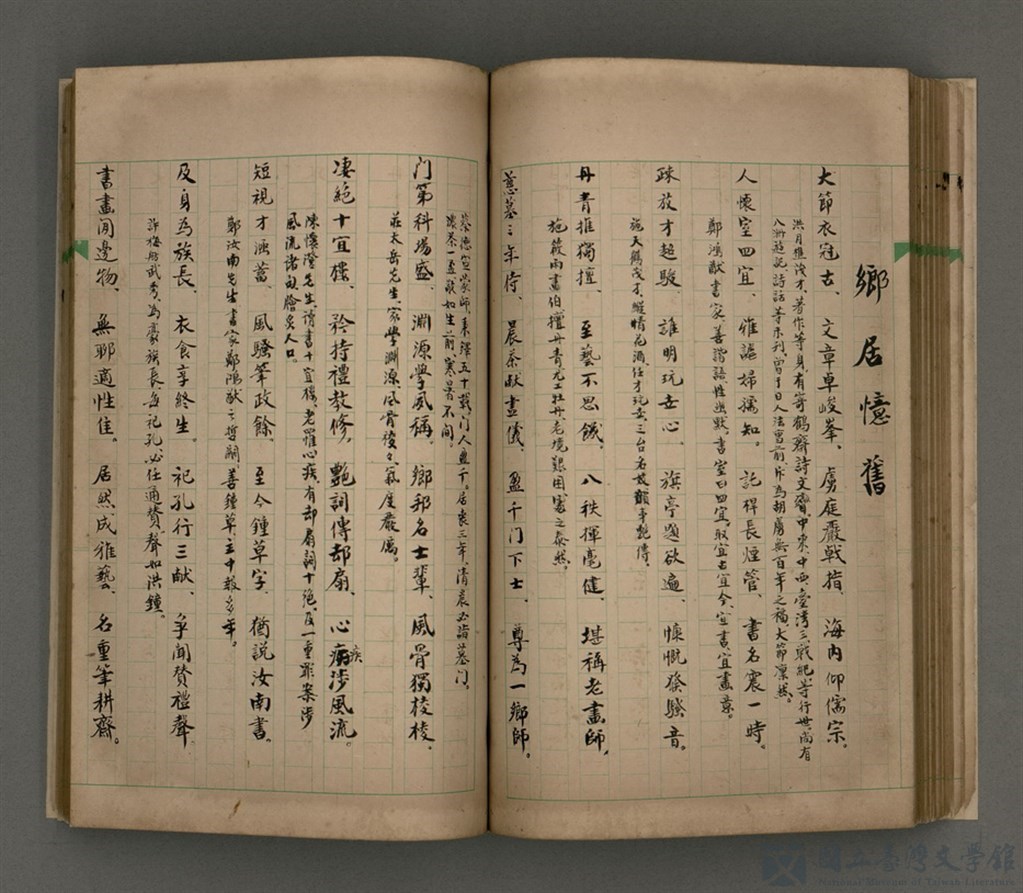 鄉居憶舊
大節衣冠古、文章卓峻峯、虜庭嚴戟指、海內仰儒宗。
洪月樵茂才、著作等身、有寄鶴齋詩文霽、中東、中西、臺灣三戰紀等行世、尚有
八州遊記、詩話等未刊、曾于日人法官前、斥為胡虜無百年之福、大節凜然。
人懷室四宜、雅謔婦孺知。託稈長煙管、書名震一時。
鄭鴻猷書家、善謔語、性幽默、書室曰四宜、取宜古宜今、宜書、宜畫意。
疎放才超駿、誰明玩世心、旗亭題欲遍、慷慨發騷音。
施天鶴茂才、縱情花酒、任才玩世、三台名妓顏手艷傳。
丹青推獨擅、至藝不思餓、八秩揮毫健、堪稱老畫師。
施筱雨畫伯擅丹青、尤工牡丹、老境艱困、處之泰然。
蔥墓三年侍、晨茶獻盡儀、盈千门下士、尊為一鄉師。
蔡德宣蒙師、秉鐸五十載、门人盈千。居喪三年、清晨必詣墓门、
潑茶一盂、獻如生前、寒暑不间。
门第科場盛、淵源學風稱、鄉邦名士輩、風骨獨棱棱、
莊太岳先生、家學淵源、風骨棱々、氣度嚴厲。
凄絕十宜樓、矜持禮教修、艷詞傳却扇、心疾涉風流。
陳懷澄先生、讀書十宜樓、老罹心疾、有却扇詞十絕、及一重罪案涉
風流諸句、膾炙人口。
短視才涵蓄、風騷筆政餘、至今鍾草字、猶說汝南書。
鄭汝南先生書家鄭鴻猷之哲嗣、善鍾草、主中報多年。
及身為族長、衣食享終生、祀孔行三献、爭闻贊禮聲
許梅舫武秀、為豪族長、每祀孔、必任通贊、聲如洪鐘。
書畫间邊物、無聊適性佳。居然成雅藝、名重筆耕齋。
國立臺灣文學館
National Museum of Taiwan Literature